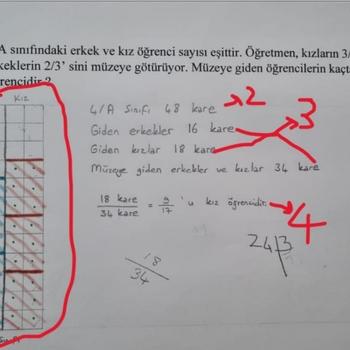 A sınıfındaki erkek ve kız öğrenci sayısı eşittir. Öğretmen, kızların 3/
keklerin 2/3' sini müzeye götürüyor. Müzeye giden öğrencilerin kaçta
rencidir?
KIZ
4/A Sınıfı 48 kare 2
Giden erkekler 16 kare 3
Giden kızlar 18 kare
Müzeye giden erkekler ve kızlar 34 kare
18 kare
34 kare
= 9/17 'u kız öğrencidir. 4
24 3
18
34